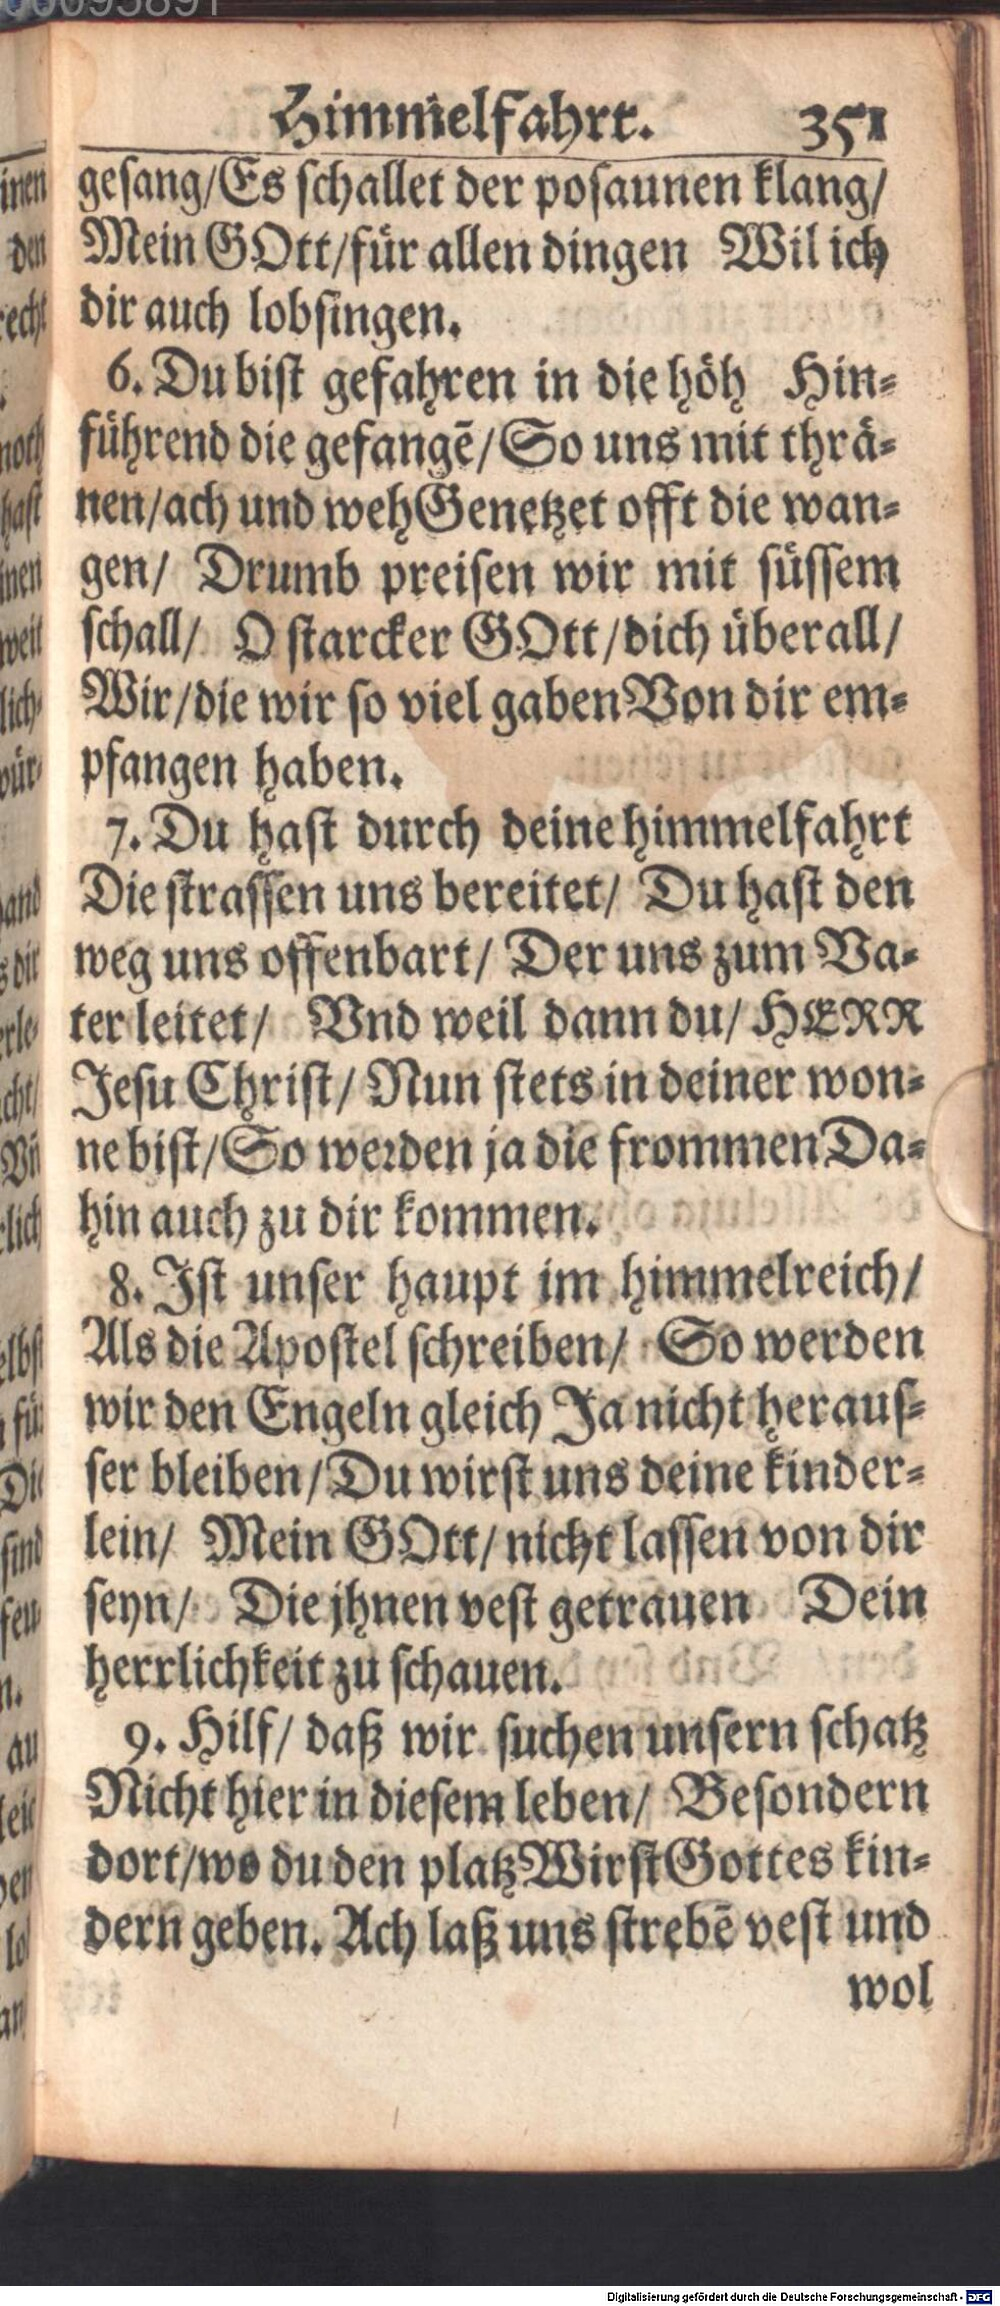 Himmelfahrt. 351
gesang/Es schallet der posaunen klang/
Mein GOtt/für allen dingen Wil ich
dir auch lobsingen.
6. Du bist gefahren in die höh Hin⸗
führend die gefangē/So uns mit thrä⸗
nen/ach und weh Genetzet offt die wan⸗
gen/ Drumb preisen wir mit süssem
schall/ O starcker GOtt/dich überall/
Wir/die wir so viel gaben Von dir em⸗
pfangen haben.
7. Du hast durch deine himmelfahrt
Die strassen uns bereitet/ Du hast den
weg uns offenbart/ Der uns zum Va⸗
ter leitet/ Vnd weil dann du/ HERR
Jesu Christ/ Nun stets in deiner won⸗
ne bist/So werden ja die frommen Da⸗
hin auch zu dir kommen.
8. Ist unser haupt im himmelreich/
Als die Apostel schreiben/ So werden
wir den Engeln gleich Ja nicht heraus⸗
ser bleiben/Du wirst uns deine kinder⸗
lein/ Mein GOtt/nicht lassen von dir
seyn/ Die jhnen vest getrauen Dein
herrlichkeit zu schauen.
9. Hilf/ daß wir suchen unsern schatz
Nicht hier in diesem leben/ Besondern
dort/wo du den platz Wirst Gottes kin⸗
dern geben. Ach laß uns strebē vest und
wol
Digitalisierung gefördert durch die Deutsche Forschungsgemeinschaft - DFG